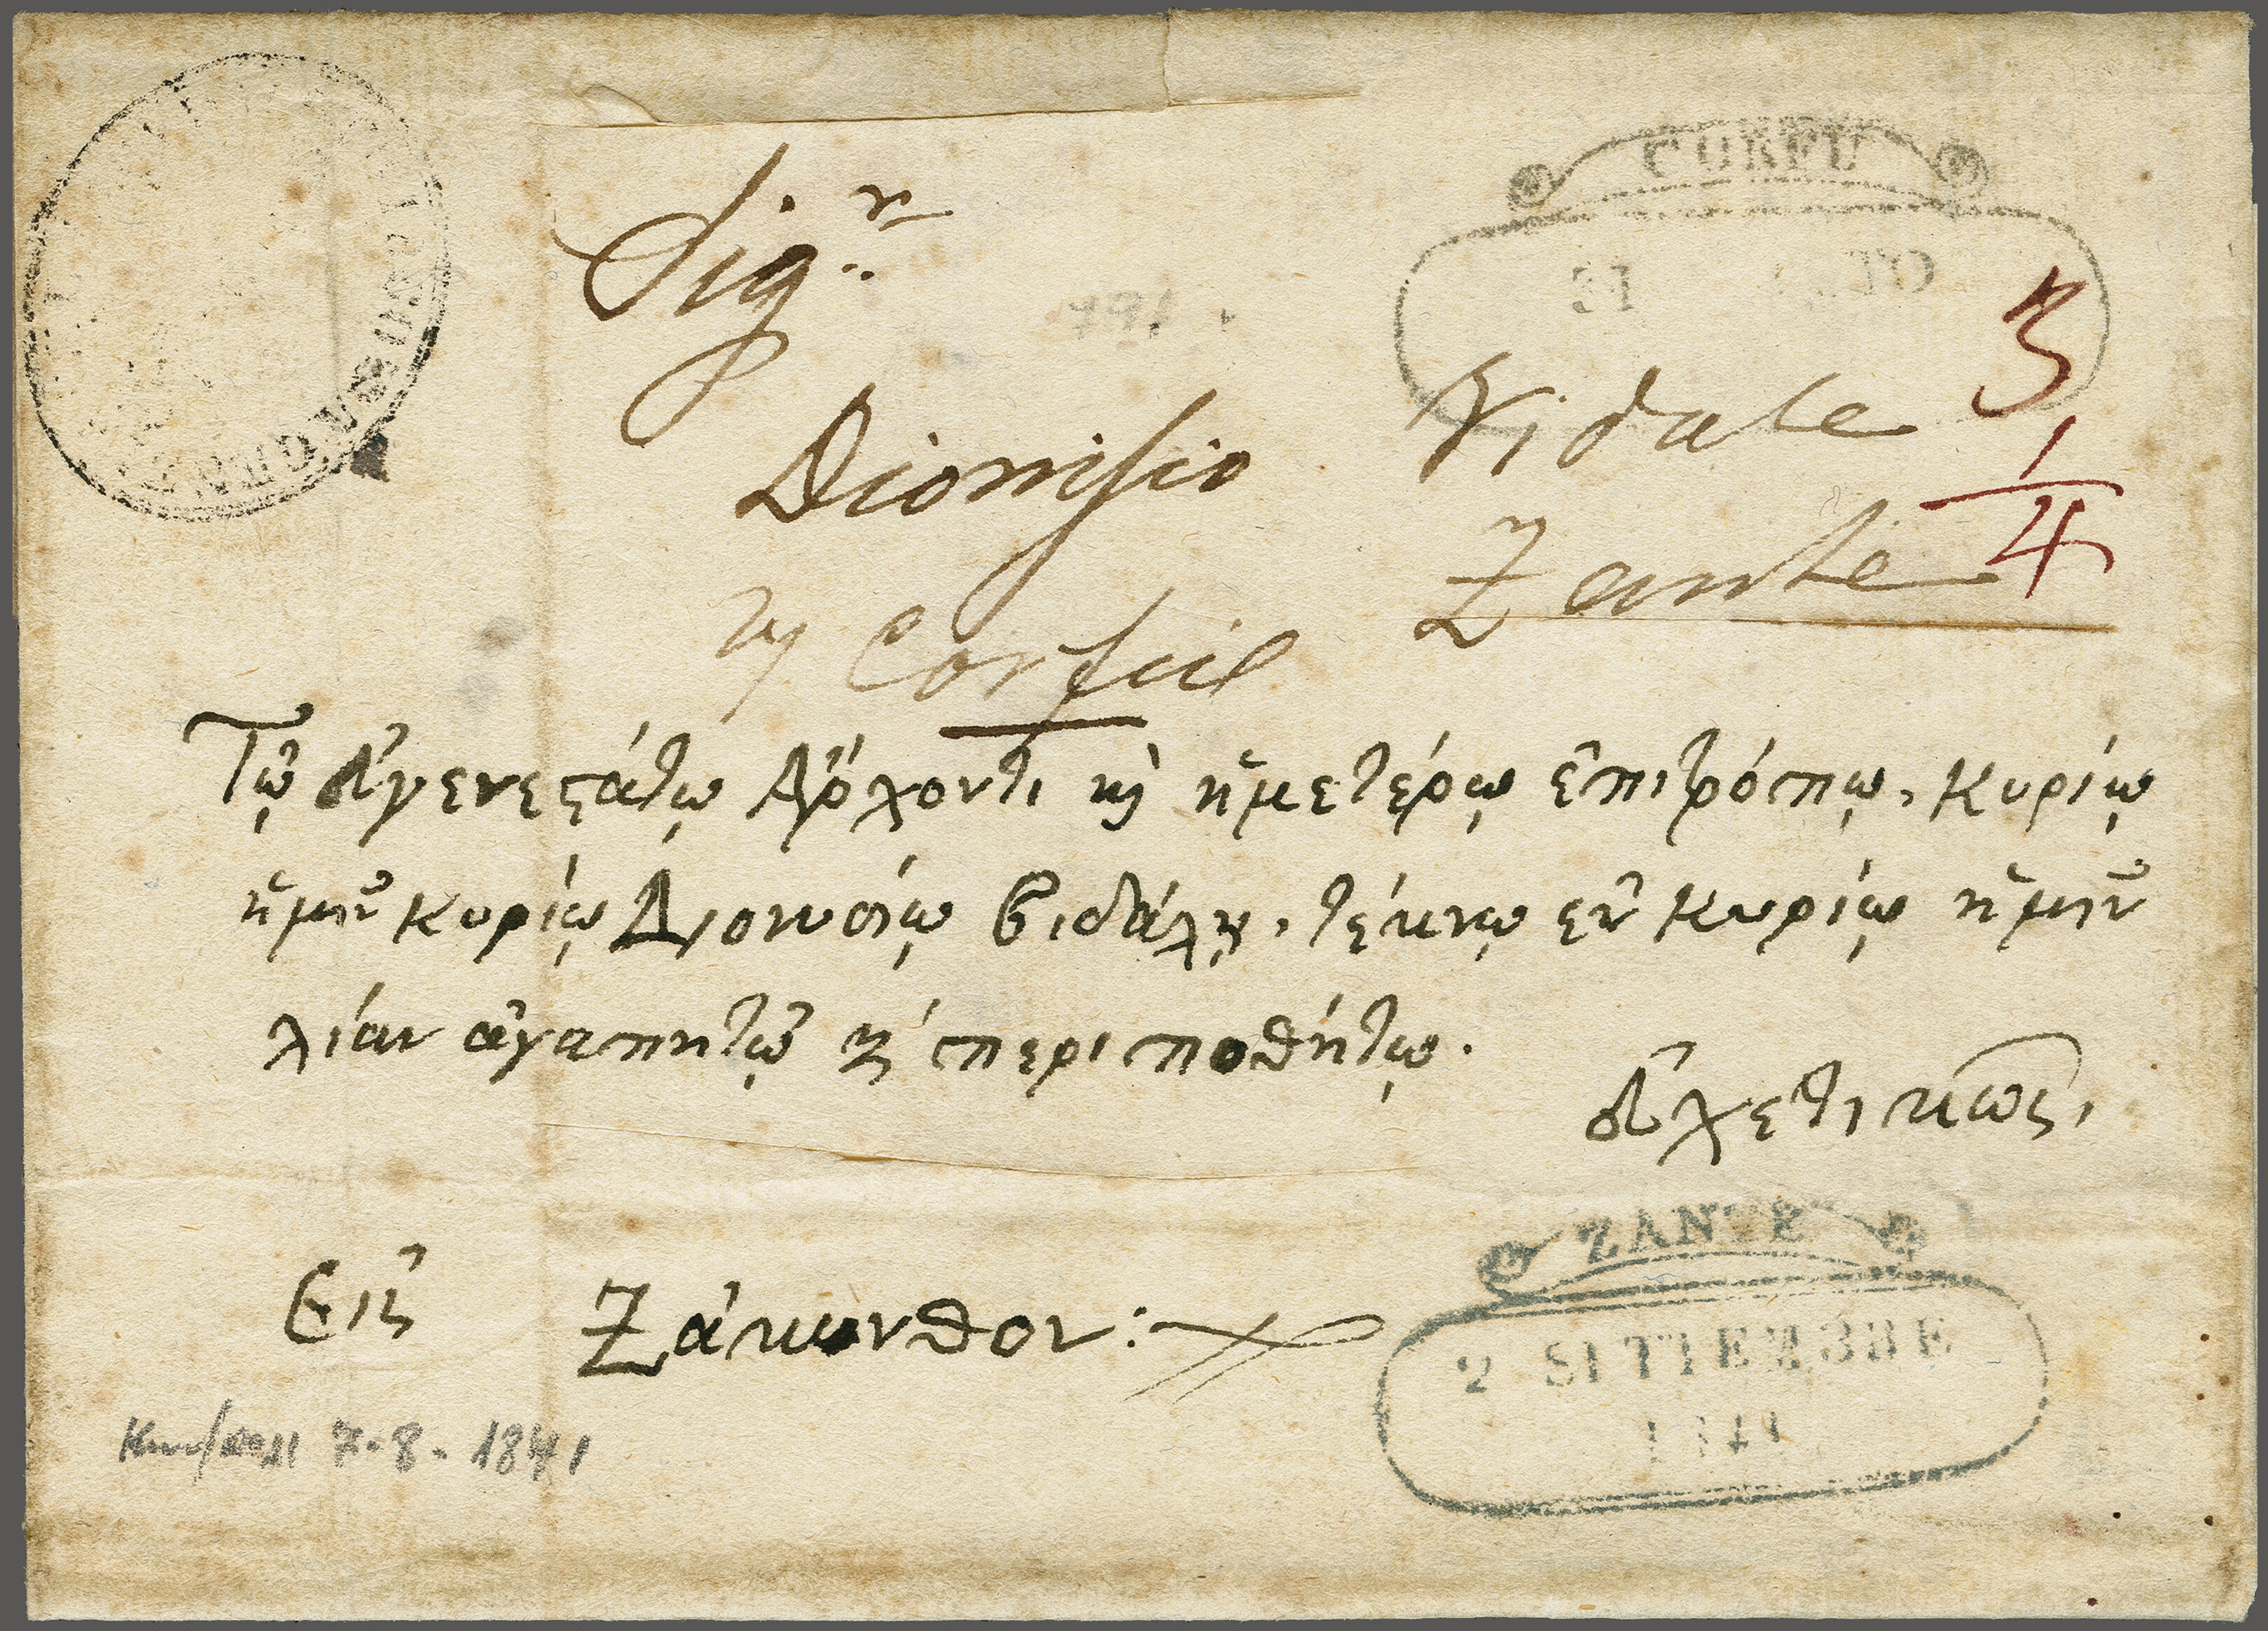 CORFU
31 TO
Sig.r
Dionisio Vidale
3
1/4
Zante
Corfu
Τῷ εὐγενεστάτῳ Ἄρχοντι κὶ ἡμετέρῳ ἐπιτρόπῳ, κυρίῳ
ἡμῖν κυρίῳ Διονυσίῳ Βιδάλῃ, τέκνῳ ἐν κυρίῳ ἡμῖν
λίαν ἀγαπητῷ κ' περιποθήτῳ.
εὐχετικῶς,
Εἰς Ζάκυνθον:
ZANTE
2 SETTEMBRE
1841
7-8-1841